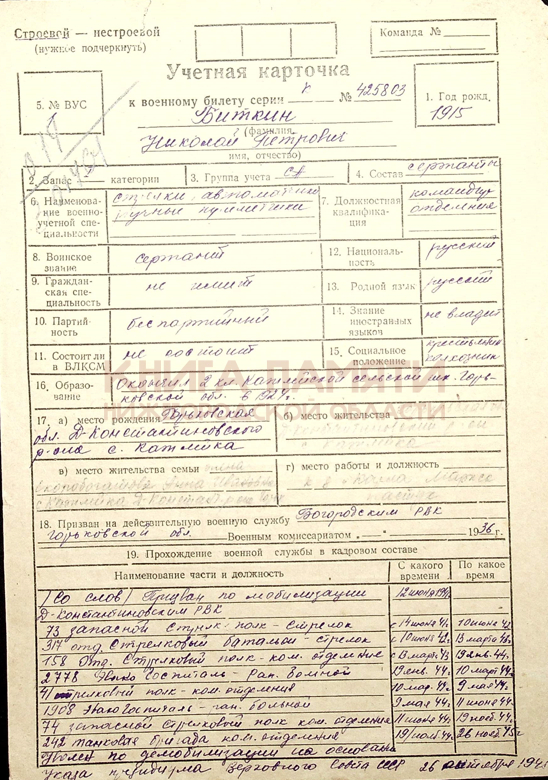 Строевой — нестроевой
(нужное подчеркнуть)
Команда №
Учетная карточка
5. № ВУС
1
к военному билету серии № 425803
1. Год рожд.
1915
Биткин
(фамилия,
Николай Петрович
имя, отчество)
2. Запас категории
3. Группа учета СА
4. Состав сержантск
6. Наименование военно-учетной специальности
стрелки, автоматчики
ручные пулеметчики
7. Должностная квалификация
командир
отделения
8. Воинское звание
сержант
12. Национальность
русский
9. Гражданская специальность
не имеет
13. Родной язык
русский
10. Партийность
беспартийный
14. Знание иностранных языков
не владеет
11. Состоит ли в ВЛКСМ
не состоит
15. Социальное положение
колхозник
КНИГА ПАМЯТИ
НИЖЕГОРОДСКОЙ ОБЛАСТИ
16. Образование
Окончил 2 кл. сельской шк. Горьковской обл. в 1927г.
17. а) место рождения Горьковская
обл. Д-Константиновского
р-она с.
б) место жительства
в) место жительства семьи
г) место работы и должность
18. Призван на действительную военную службу Богородским РВК
Горьковской обл. Военным комиссариатом 1936 г.
19. Прохождение военной службы в кадровом составе
Наименование части и должность
С какого времени
По какое время
(Со слов) Призван по мобилизации
Д-Константиновским РВК
73 запасной стрелк. полк - стрелок
317 отд. стрелковый батальон стрелок
158 отд. стрелковый полк - ком. отделения
19 янв. 44г.
2778 госпиталь - ран. больной
19 янв. 44г. 10 март 44г.
41 стрелковый полк - ком. отделения
10 мар. 44г. 9 мая 44г.
1908 эвакогоспиталь - ран. больной
9 мая 44г. 11 июня 44г.
74 запасной стрелковый полк ком. отделения
11 июня 44г. 19 нояб 44г.
242 танковая бригада ком. отделения
26 нояб 45г.
Уволен по демобилизации на основании
Указа президиума Верховного Совета СССР